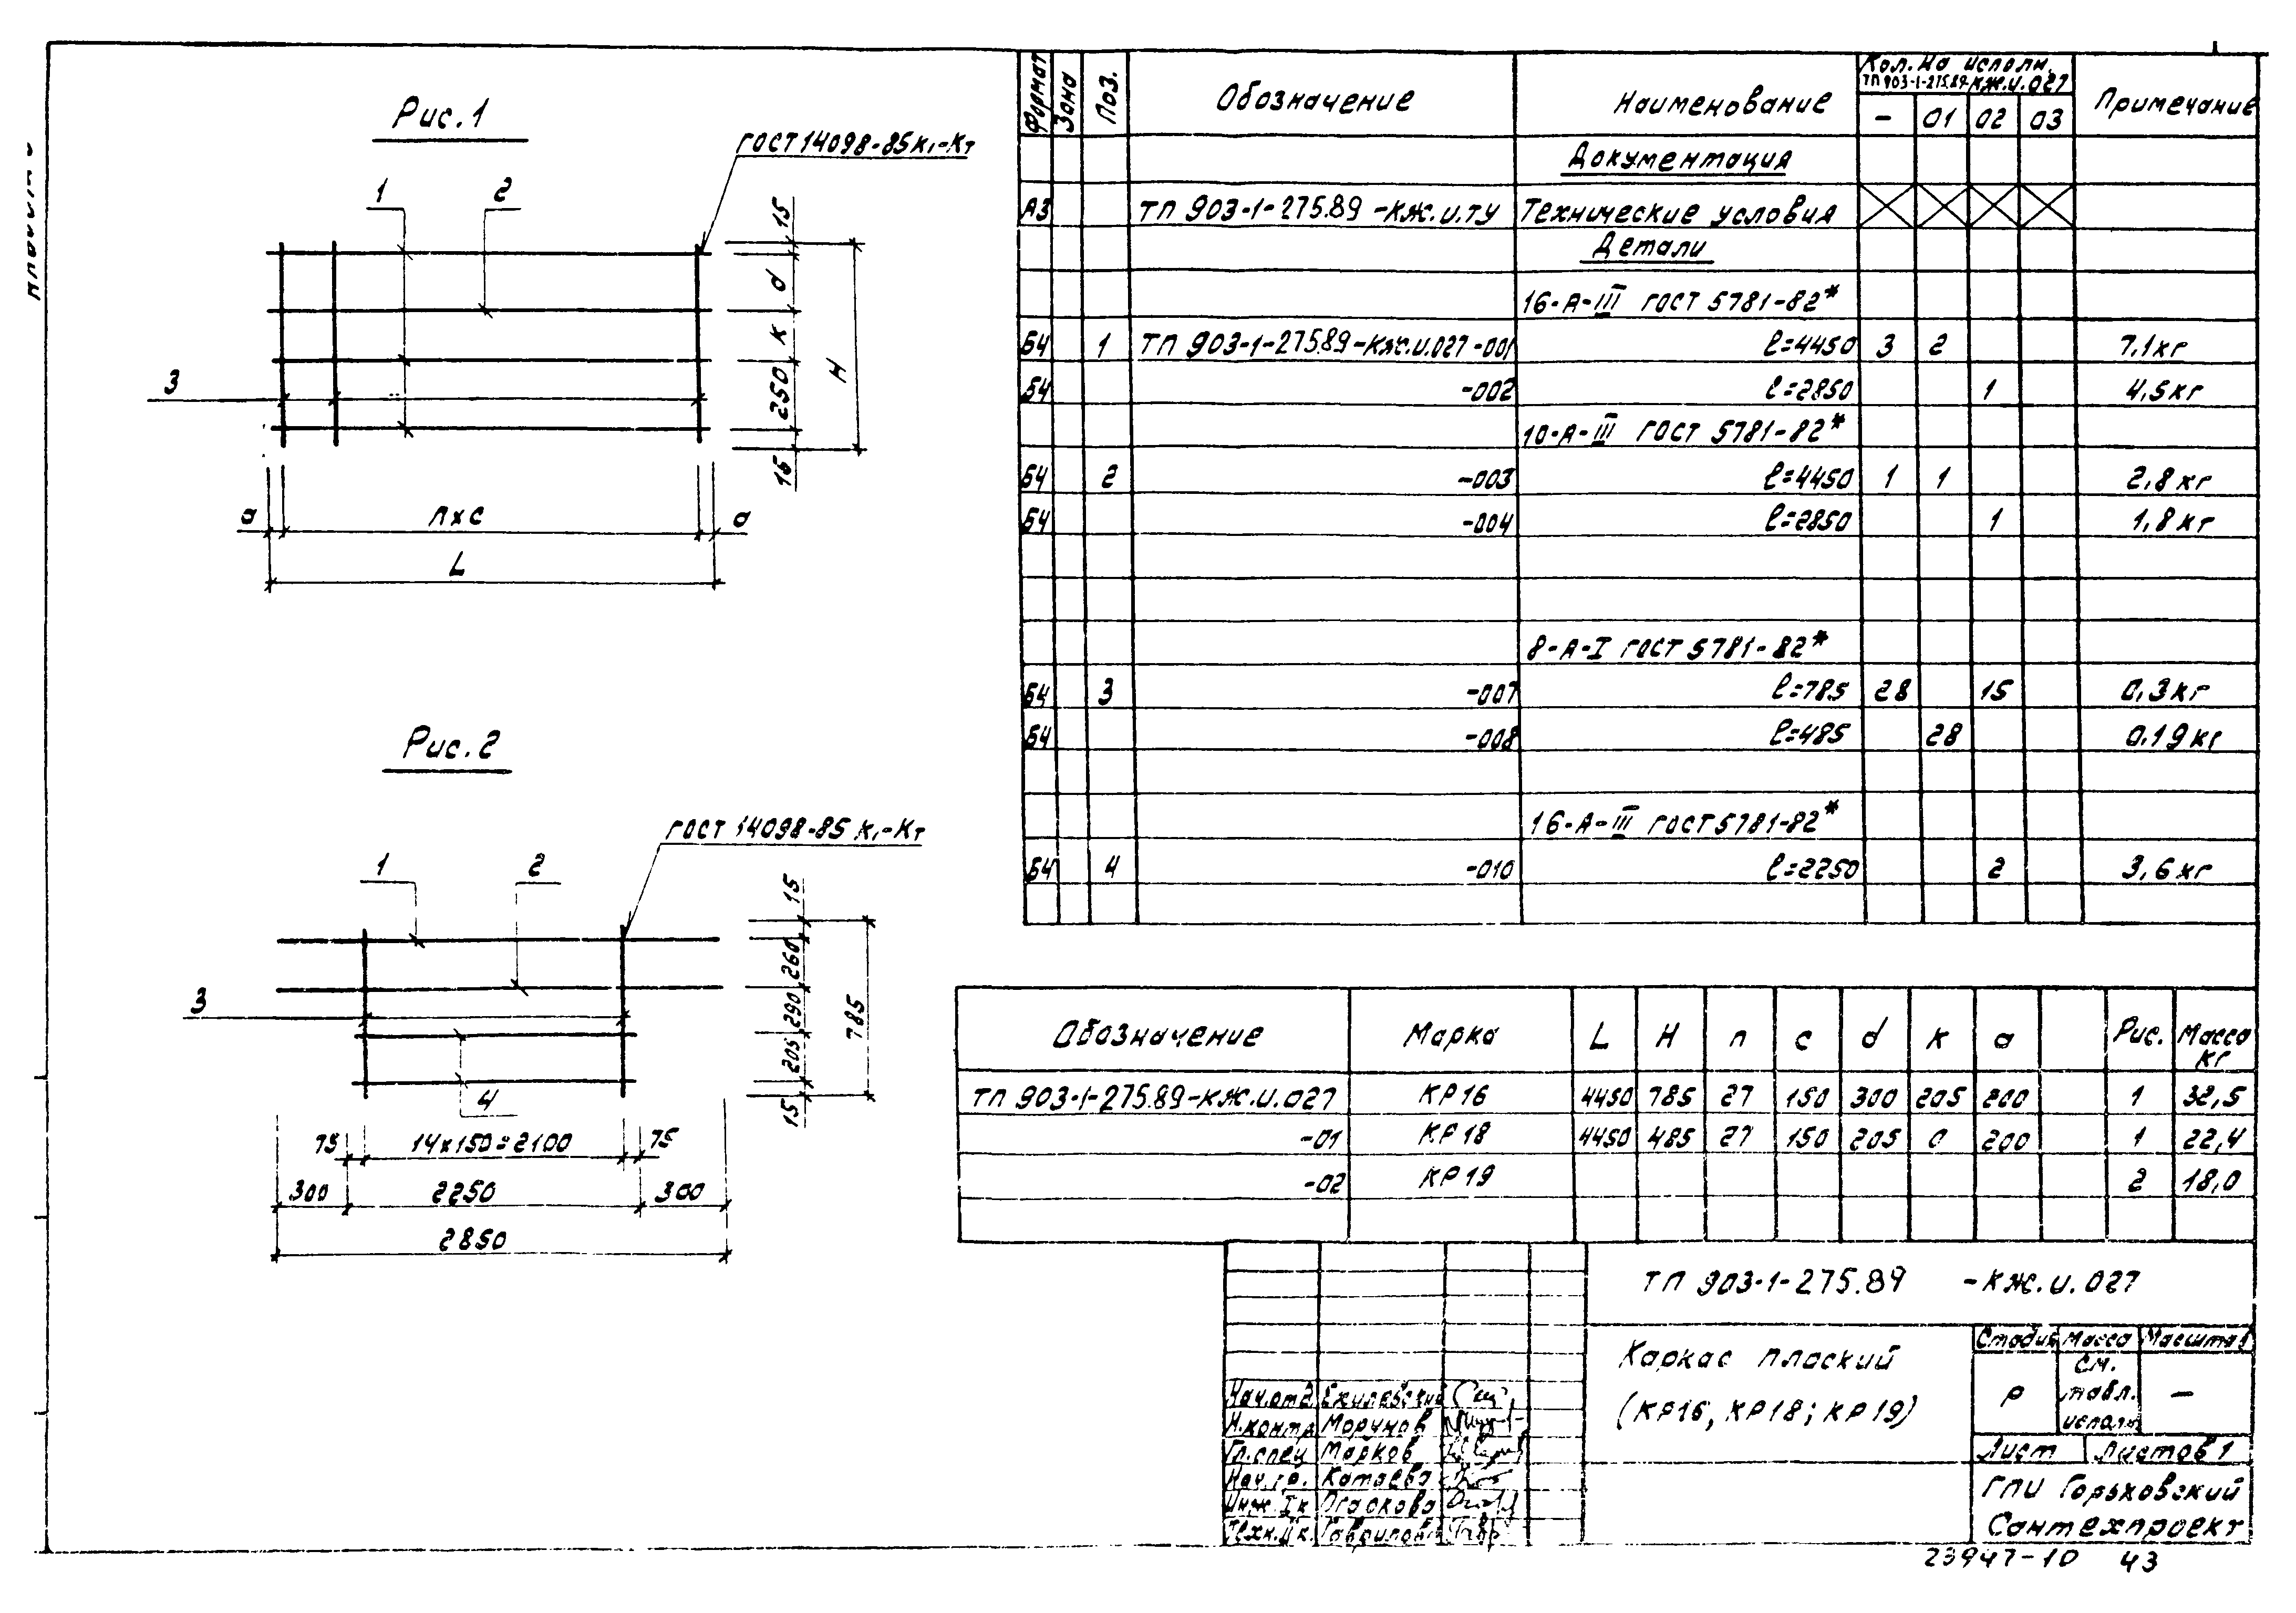 Рис.1
ГОСТ 14098-85 К₁-Кт
1
2
3
15
d
к
250
15
H
a
n×c
a
L
Рис.2
ГОСТ 14098-85 К₁-Кт
1
2
3
4
15
260
290
205
15
785
75
14×150=2100
75
300
2250
300
2850
Формат Зона Поз. Обозначение Наименование Кол. на исполн. ТП 903-1-275.89-КЖ.И.027 Примечание
- 01 02 03
Документация
А3 ТП 903-1-275.89 -КЖ.И.ТУ Технические условия
Детали
16-А-III ГОСТ 5781-82*
Б4 1 ТП 903-1-275.89-КЖ.И.027-001 ℓ=4450 3 2 7,1кг
Б4 -002 ℓ=2850 1 4,5кг
10-А-III ГОСТ 5781-82*
Б4 2 -003 ℓ=4450 1 1 2,8кг
Б4 -004 ℓ=2850 1 1,8кг
8-А-I ГОСТ 5781-82*
Б4 3 -007 ℓ=785 28 15 0,3кг
Б4 -008 ℓ=485 28 0.19кг
16-А-III ГОСТ 5781-82*
Б4 4 -010 ℓ=2250 2 3,6кг
Обозначение Марка L H n c d к a Рис. Масса кг
ТП 903-1-275.89-КЖ.И.027 КР16 4450 785 27 150 300 205 200 1 32,5
-01 КР18 4450 485 27 150 205 0 200 1 22,4
-02 КР19 2 18,0
ТП 903-1-275.89 -КЖ.И.027
Каркас плоский
(КР16, КР18; КР19)
Стадия Масса Масштаб
Р См. табл. исполн. —
Лист Листов 1
ГПИ Горьковский
Сантехпроект
Нач.отд.
Н.контр. Морунов
Гл.спец Марков
Нач.гр. Катаева
Инж.Iк
Техн.IIк. Гаврилова
23947-10 43